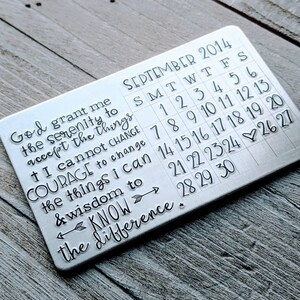 God, grant me
the serenity to
accept the things
I cannot CHANGE
COURAGE to change
the things I can
& wisdom to
KNOW
the difference.
SEPTEMBER 2014
S M T W T F S
1 2 3 4 5 6
7 8 9 10 11 12 13
14 15 16 17 18 19 20
21 22 23 24 ♡ 26 27
28 29 30